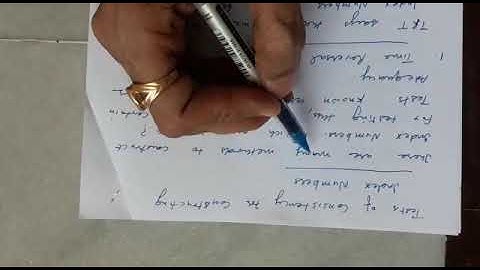 Tests of Consistency in Constructing
Index Numbers
There are many methods to construct
Index Numbers. which
For testing this, certain
Tests known
Adequacy
1. Time Reversal
TRT says that
Index Numbers